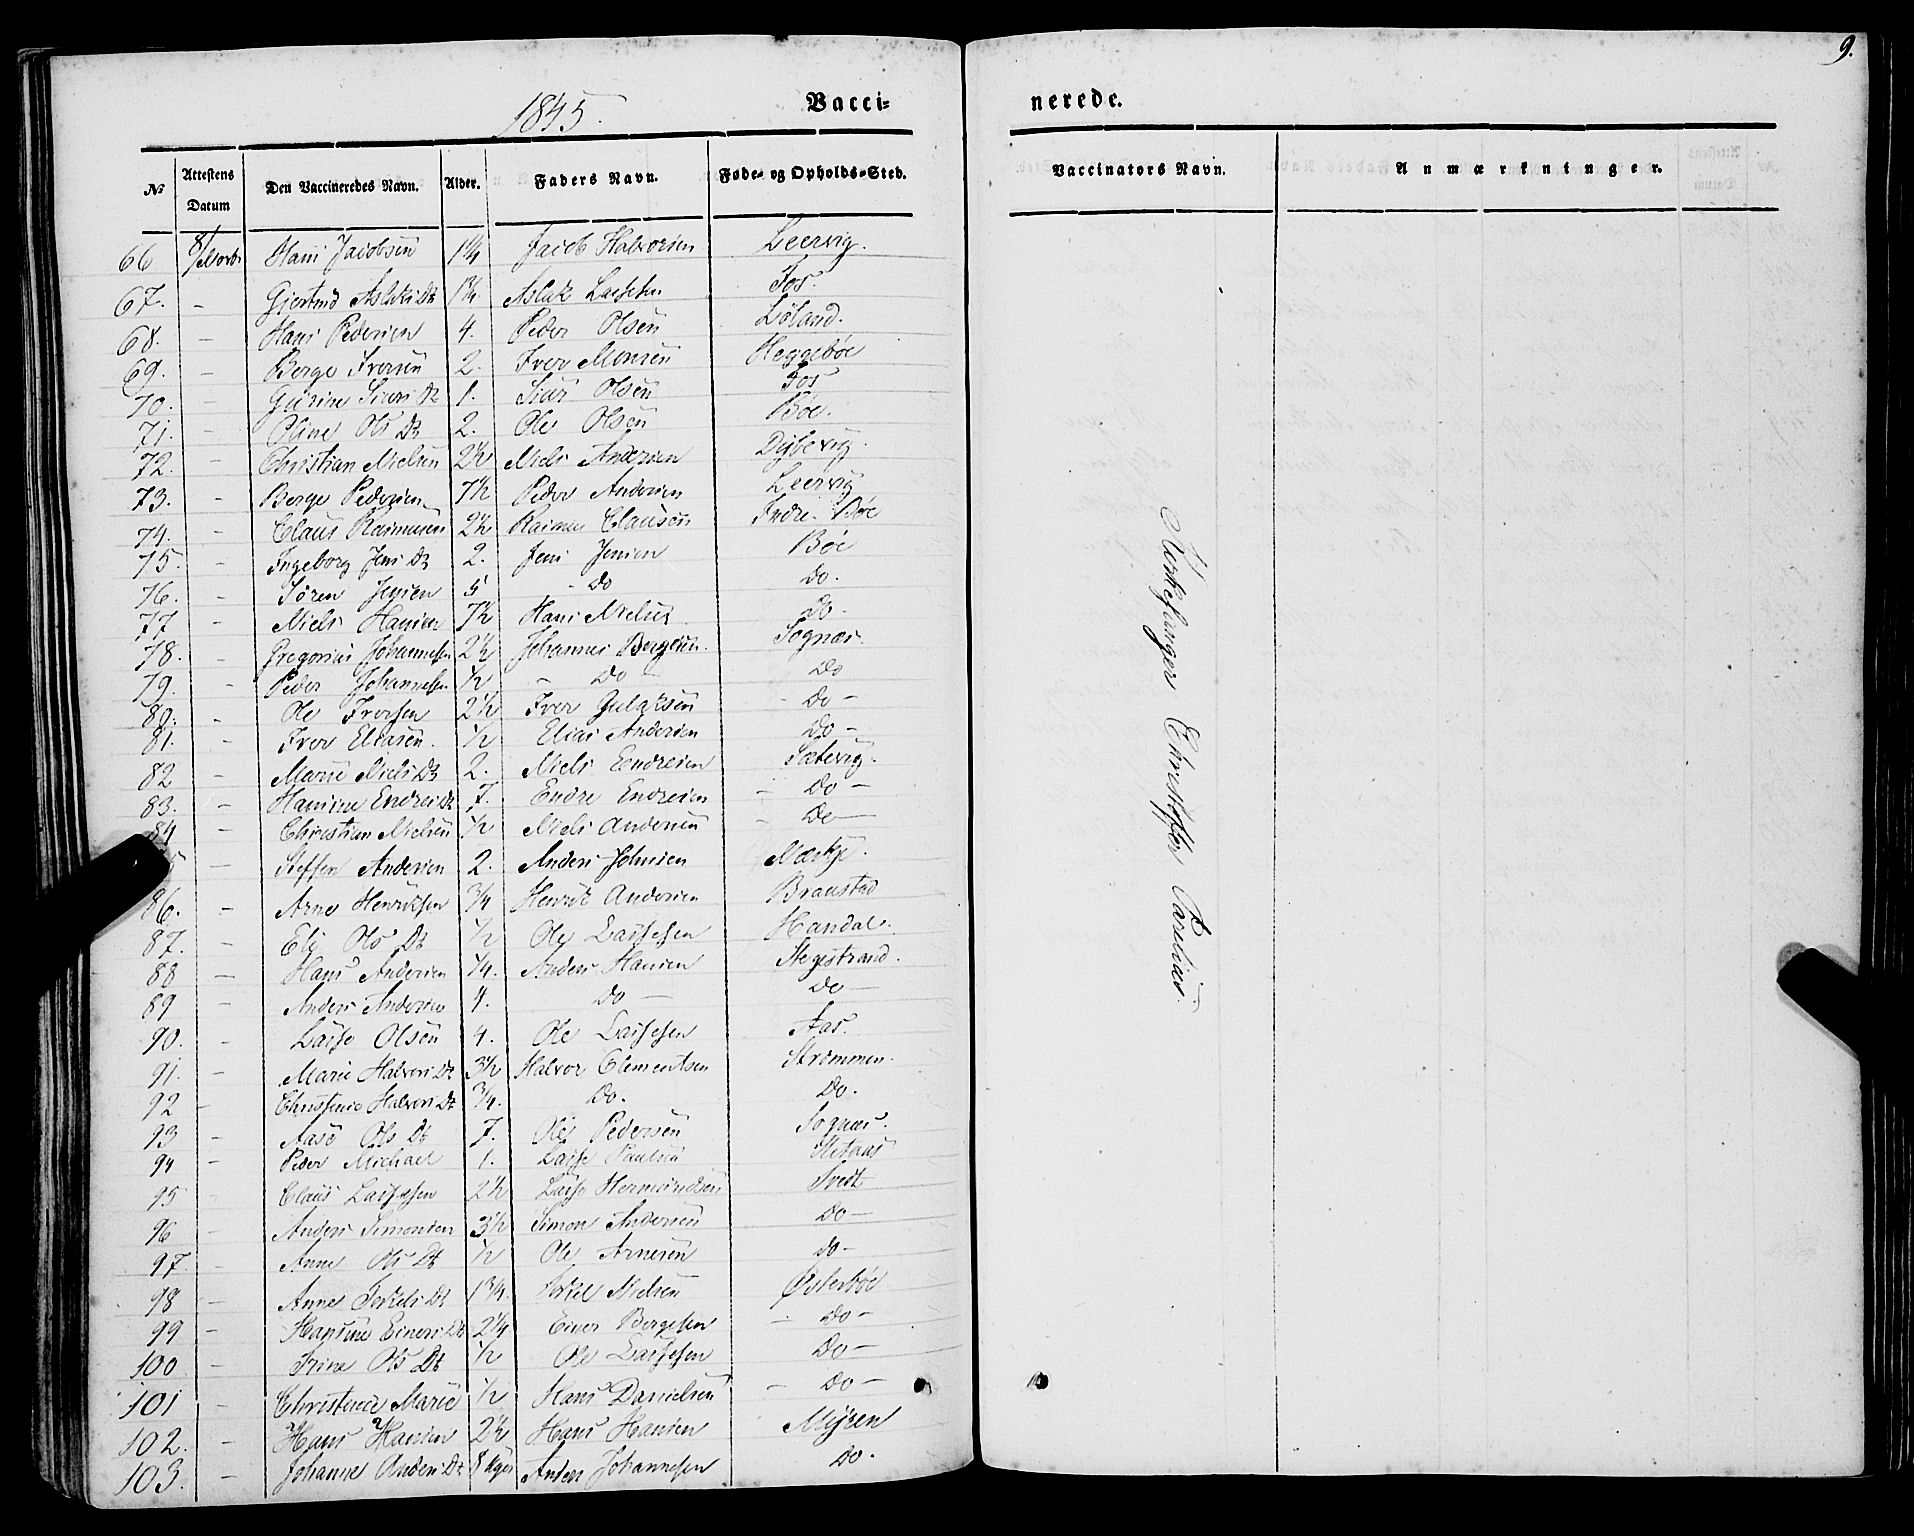 9.
1845.
Vacci-
nerede.
№ Attestens Datum Den Vaccineredes Navn. Alder. Faders Navn. Føde- og Opholds-Sted. Vaccinators Navn. Anmærkninger.
66 8/ Hans Jacobsen 1¼ Jacob Halvorsen Leervig.
67. - Gjertrud Aslaks Dt 1¾ Aslak Lassesen Fos.
68. - Hans Pedersen 4. Peder Olsen Løland.
69. - Berge Iversen 2. Iver Monsen Heggebøe
70. - Gurine Siurs Dt 1. Siur Olsen Fos
71. - Oline Ols Dt 2. Ole Olsen Bøe.
72. - Christian Nielsen 2½ Niels Andersen Dybevig.
73. - Berge Pedersen 7½ Peder Andersen Leervig
74. - Claus Rasmusen 2½ Rasmus Clausen Indre Bøe
75. - Ingeborg Jens Dt 2. Jens Jensen Bøe
76. - Søren Jensen 5 - Do Do.
77 - Niels Hansen 7½ Hans Nielsen Do.
78. - Gregorius Johannesen 2½ Johannes Bergesen. Sognæs.
79. - Peder Johannesen ½ - Do Do
80. - Ole Iversen 2½ Iver Gulaksen - Do -
81. - Iver Eliasen. ½ Elias Andersen Do -
82 - Marie Niels Dt 2. Niels Endresen Sætevig.
83. - Hansine Endres Dt 7. Endre Endresen - Do -
84 - Christian Nielsen ½ Niels Andersen - Do -
- Steffen Andersen 2. Anders Johnsen
86. - Arne Henriksen ¾ Henrik Andersen Braustad
87. - Eli Ols Dt ½ Ole Lassesen Handal.
88 - Hans Andersen ¼. Anders Hansen Stegstrand.
89 - Anders Andersen 4. Do - Do -
90. - Lasse Olsen 4. Ole Lassesen Aas.
91. - Marie Halvors Dt 3½ Halvor Clementsen Strømmen.
92 - Christense Halvors Dt ¾. Do. Do.
93 - Aase Ols Dt 7. Ole Pedersen Sognæs.
94 - Peder Michael 1. Lasse Paulsen
95 - Claus Lassesen 2½ Lasse Hermundsen Tvedt
96 - Anders Simonsen 3½ Simon Andersen Do -
97. - Anne Ols Dt ½ Ole Arnesen Do -
98 - Anne Torkels Dt 1¾. Torkel Nielsen Østerbøe
99 - Hansine Einers Dt 2¼ Einer Bergesen - Do -
100 - Trine Ols Dt ½ Ole Lassesen Do -
101 - Christence Marie ½ Hans Danielsen - Do -
102. - Hans Hansen 2½ Hans Hansen Myren
103. - Johanne Anders Dt 8 Uger Anders Johannesen Do.
Kirkesanger Christoffer Paselius.